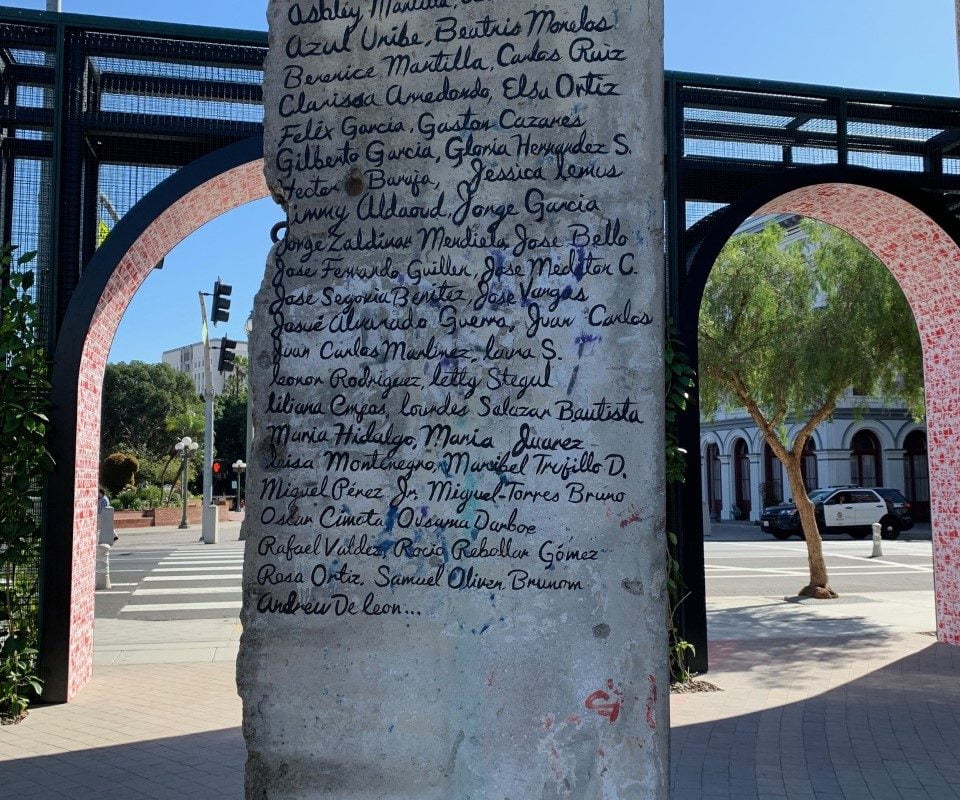 Ashley Mantilla,
Azul Uribe, Beatris Morelos
Berenice Mantilla, Carlos Ruiz
Clarissa Arredondo, Elsa Ortiz
Felix Garcia, Gaston Cazares
Gilberto Garcia, Gloria Hernandez S.
Hector Baraja, Jessica Lemus
Jimmy Aldaoud, Jorge Garcia
Jorge Zaldivar Mendieta, Jose Bello
Jose Fernando Guillen, Jose Mederton C.
Jose Segovia Benitez, Jose Vargas
Josué Alvarado Guerra, Juan Carlos
Juan Carlos Martinez, Laura S.
Leonor Rodriguez, Letty Stegul
Liliana Cmpos, Lourdes Salazar Bautista
Maria Hidalgo, Maria Juarez
Luisa Montenegro, Maribel Trujillo D.
Miguel Pérez Jr. Miguel Torres Bruno
Oscar Cimeta Ousama Darboe
Rafael Valdez, Rocio Rebollar Gómez
Rosa Ortiz, Samuel Oliver Brunom
Andrew De leon...